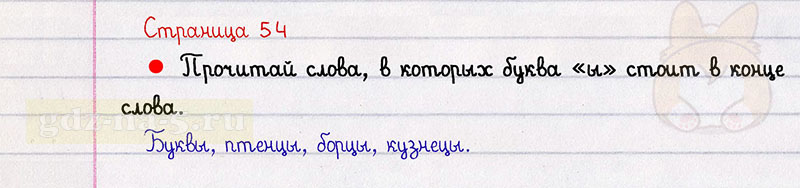 Страница 54
• Прочитай слова, в которых буква «ы» стоит в конце
слова.
gdz-n.us.ru
Буквы, птенцы, борцы, кузнецы.